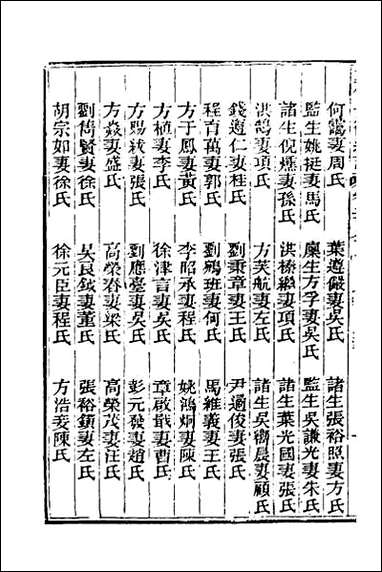 何鶚妻周氏 葉遵嚴妻吳氏 諸生張裕照妻方氏
監生姚挺妻馬氏 廩生方孚妻吳氏 監生吳謙光妻朱氏
諸生倪爔妻孫氏 洪榛繼妻項氏 諸生葉光國妻張氏
洪鵠妻項氏 方芙航妻左氏 諸生吳樹晨妻顧氏
錢遵仁妻桂氏 劉秉章妻王氏 尹遹俊妻張氏
程百萬妻郭氏 劉鵷班妻何氏 馬維義妻王氏
方于鳳妻黃氏 李昭承妻程氏 姚鴻炯妻陳氏
方植妻李氏 徐津言妻吳氏 章啟戩妻曹氏
方賜紱妻張氏 劉應臺妻吳氏 彭元發妻趙氏
方焱妻盛氏 高榮春妻梁氏 高榮茂妻汪氏
劉儔賢妻徐氏 吳良鉞妻董氏 張裕鎮妻左氏
胡宗如妻徐氏 徐元臣妻程氏 方浩妾陳氏